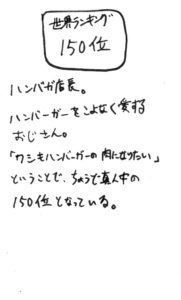 世界ランキング
150位
ハンバガ店長。
ハンバーガーをこよなく愛する
おじさん。
「ワシもハンバーガーの肉になりたい」
ということで、ちょうど真ん中の
150位となっている。